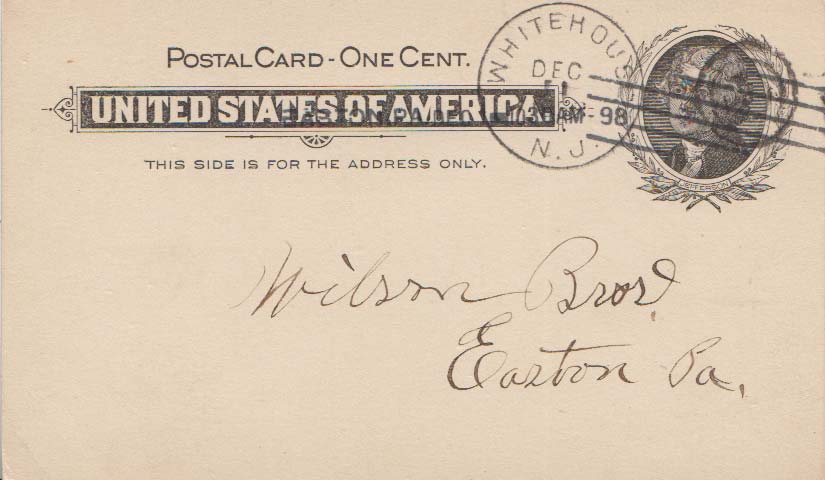 POSTAL CARD - ONE CENT.
UNITED STATES OF AMERICA.
THIS SIDE IS FOR THE ADDRESS ONLY.
WHITEHOUSE
DEC
N. J.
EASTON, PA. DEC 10 30 AM - 98
JEFFERSON
Wilson Bros.
Easton Pa.